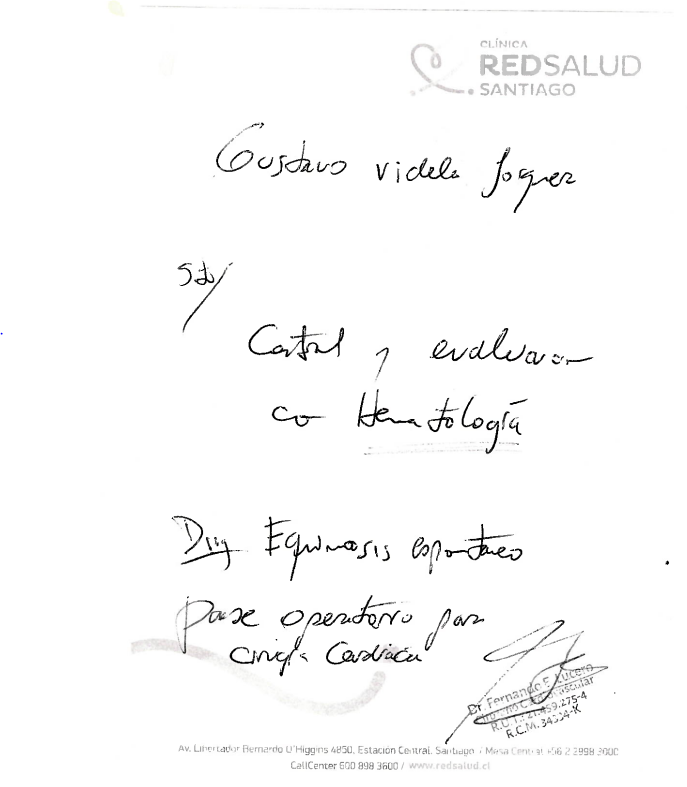 CLÍNICA
REDSALUD
SANTIAGO
Gustavo Videla Joquez
Sol/
Control y evaluacion
con Hematología
Diag Equimosis espontaneo
Pase operatorio para
cirugía Cardiaca
Dr. Fernando E. Lucero
Cirujano Cardiovascular
R.U.T.: 21.459.275-4
R.C.M.
Av. Libertador Bernardo O'Higgins 4850, Estación Central, Santiago / Mesa Central +56 2 2898 3000
CallCenter 600 898 3600 / www.redsalud.cl